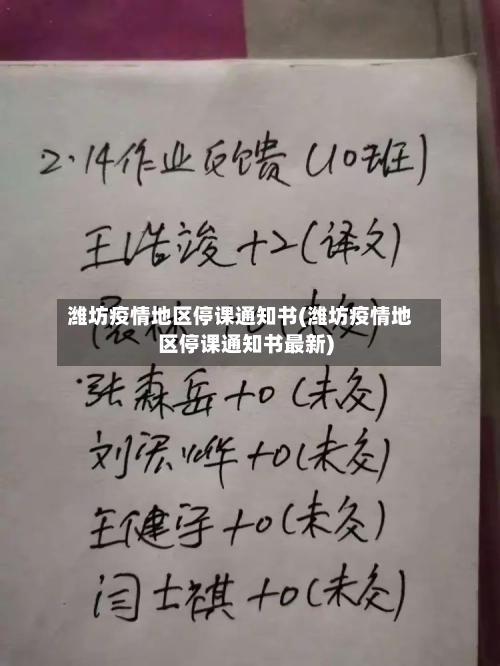 2·14作业反馈(10班)
王浩竣+2(译文)
潍坊疫情地区停课通知书(潍坊疫情地
区停课通知书最新)
张森岳+0(未交)
刘宏烨+0(未交)
王健宇+0(未交)
闫士祺+0(未交)